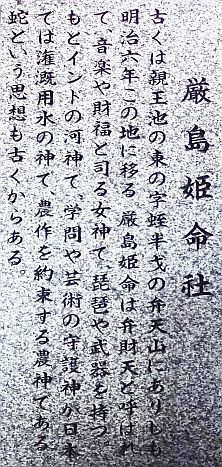 厳島姫命社
古くは親王池の東の字蛭半戋の弁天山にありしも
明治六年この地に移る 厳島姫命は弁財天と呼ばれ
て、音楽や財福と司る女神で、琵琶や武器を持つ。
もとインドの河神で、学問や芸術の守護神が日本
では潅漑用水の神で、農作を約束する農神である
蛇という思想も古くからある。